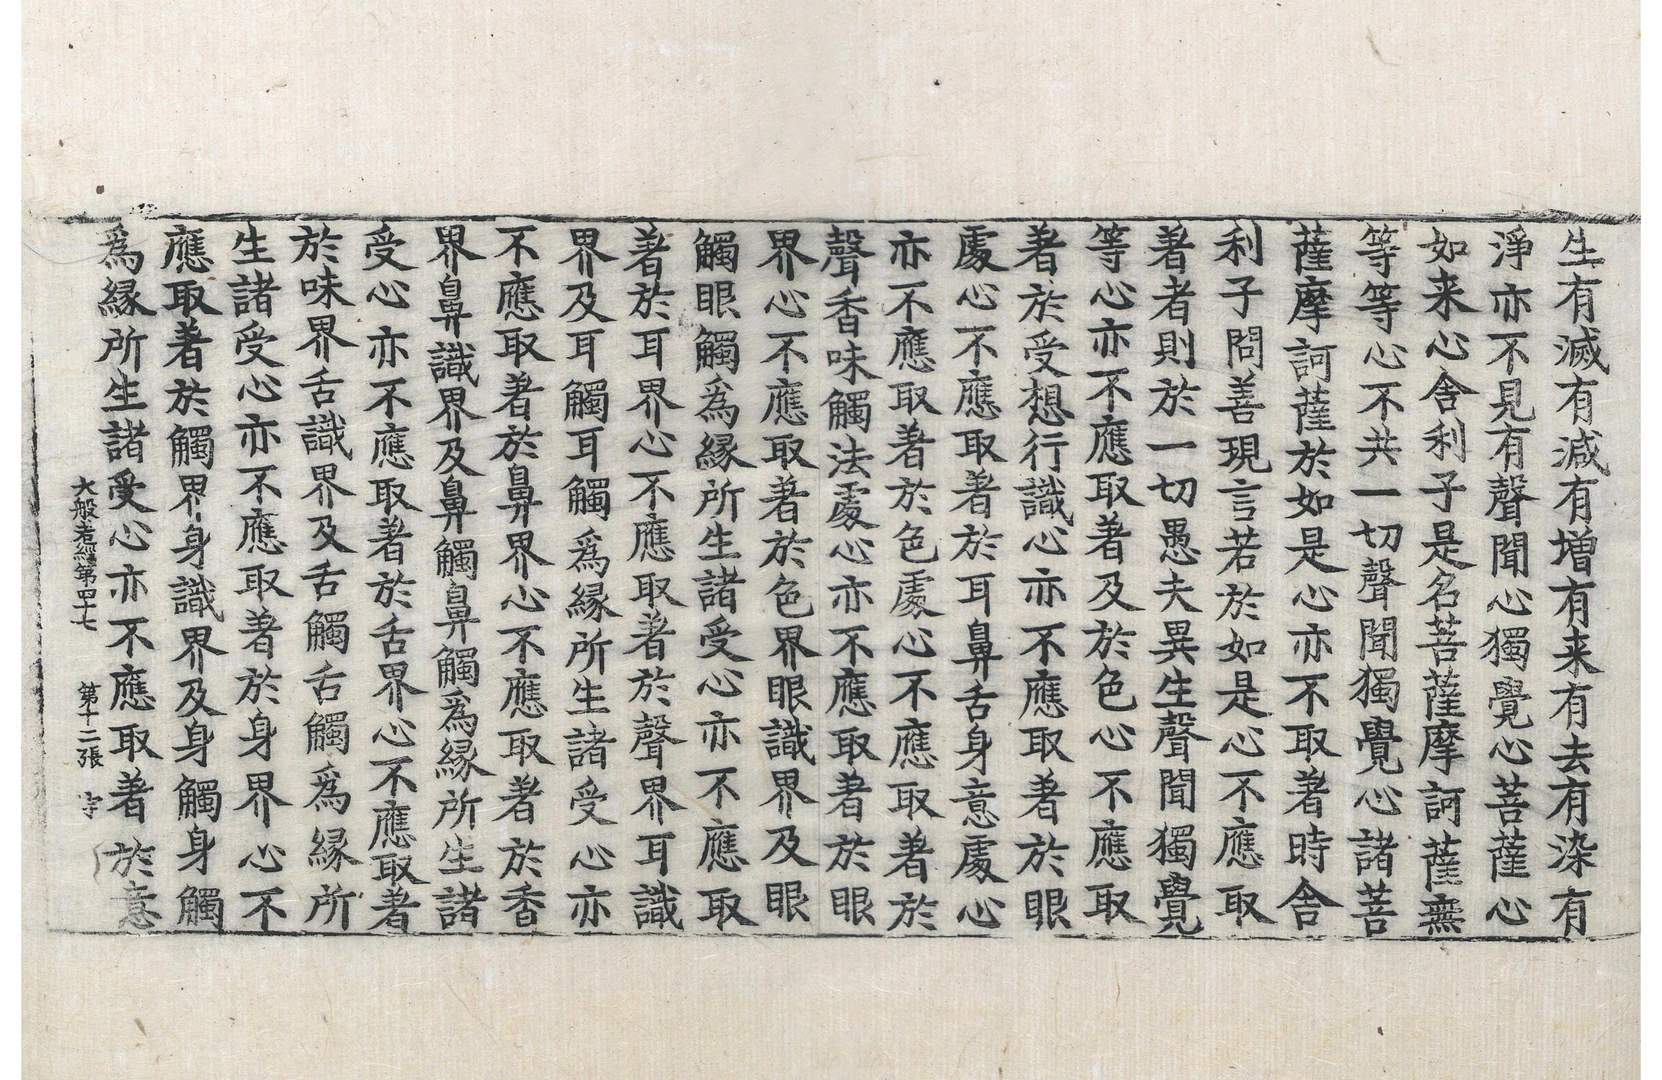 生有滅有減有增有来有去有染有
淨亦不見有聲聞心獨覺心菩薩心
如来心舍利子是名菩薩摩訶薩無
等等心不共一切聲聞獨覺心諸菩
薩摩訶薩於如是心亦不取著時舍
利子問善現言若於如是心不應取
著者則於一切愚夫異生聲聞獨覺
等心亦不應取著及於色心不應取
著於受想行識心亦不應取著於眼
處心不應取著於耳鼻舌身意處心
亦不應取著於色處心不應取著於
聲香味觸法處心亦不應取著於眼
界心不應取著於色界眼識界及眼
觸眼觸爲緣所生諸受心亦不應取
著於耳界心不應取著於聲界耳識
界及耳觸耳觸爲緣所生諸受心亦
不應取著於鼻界心不應取著於香
界鼻識界及鼻觸鼻觸爲緣所生諸
受心亦不應取著於舌界心不應取著
於味界舌識界及舌觸舌觸爲緣所
生諸受心亦不應取著於身界心不
應取著於觸界身識界及身觸身觸
爲緣所生諸受心亦不應取著於意
大般若經第四十七 第十二張 宇